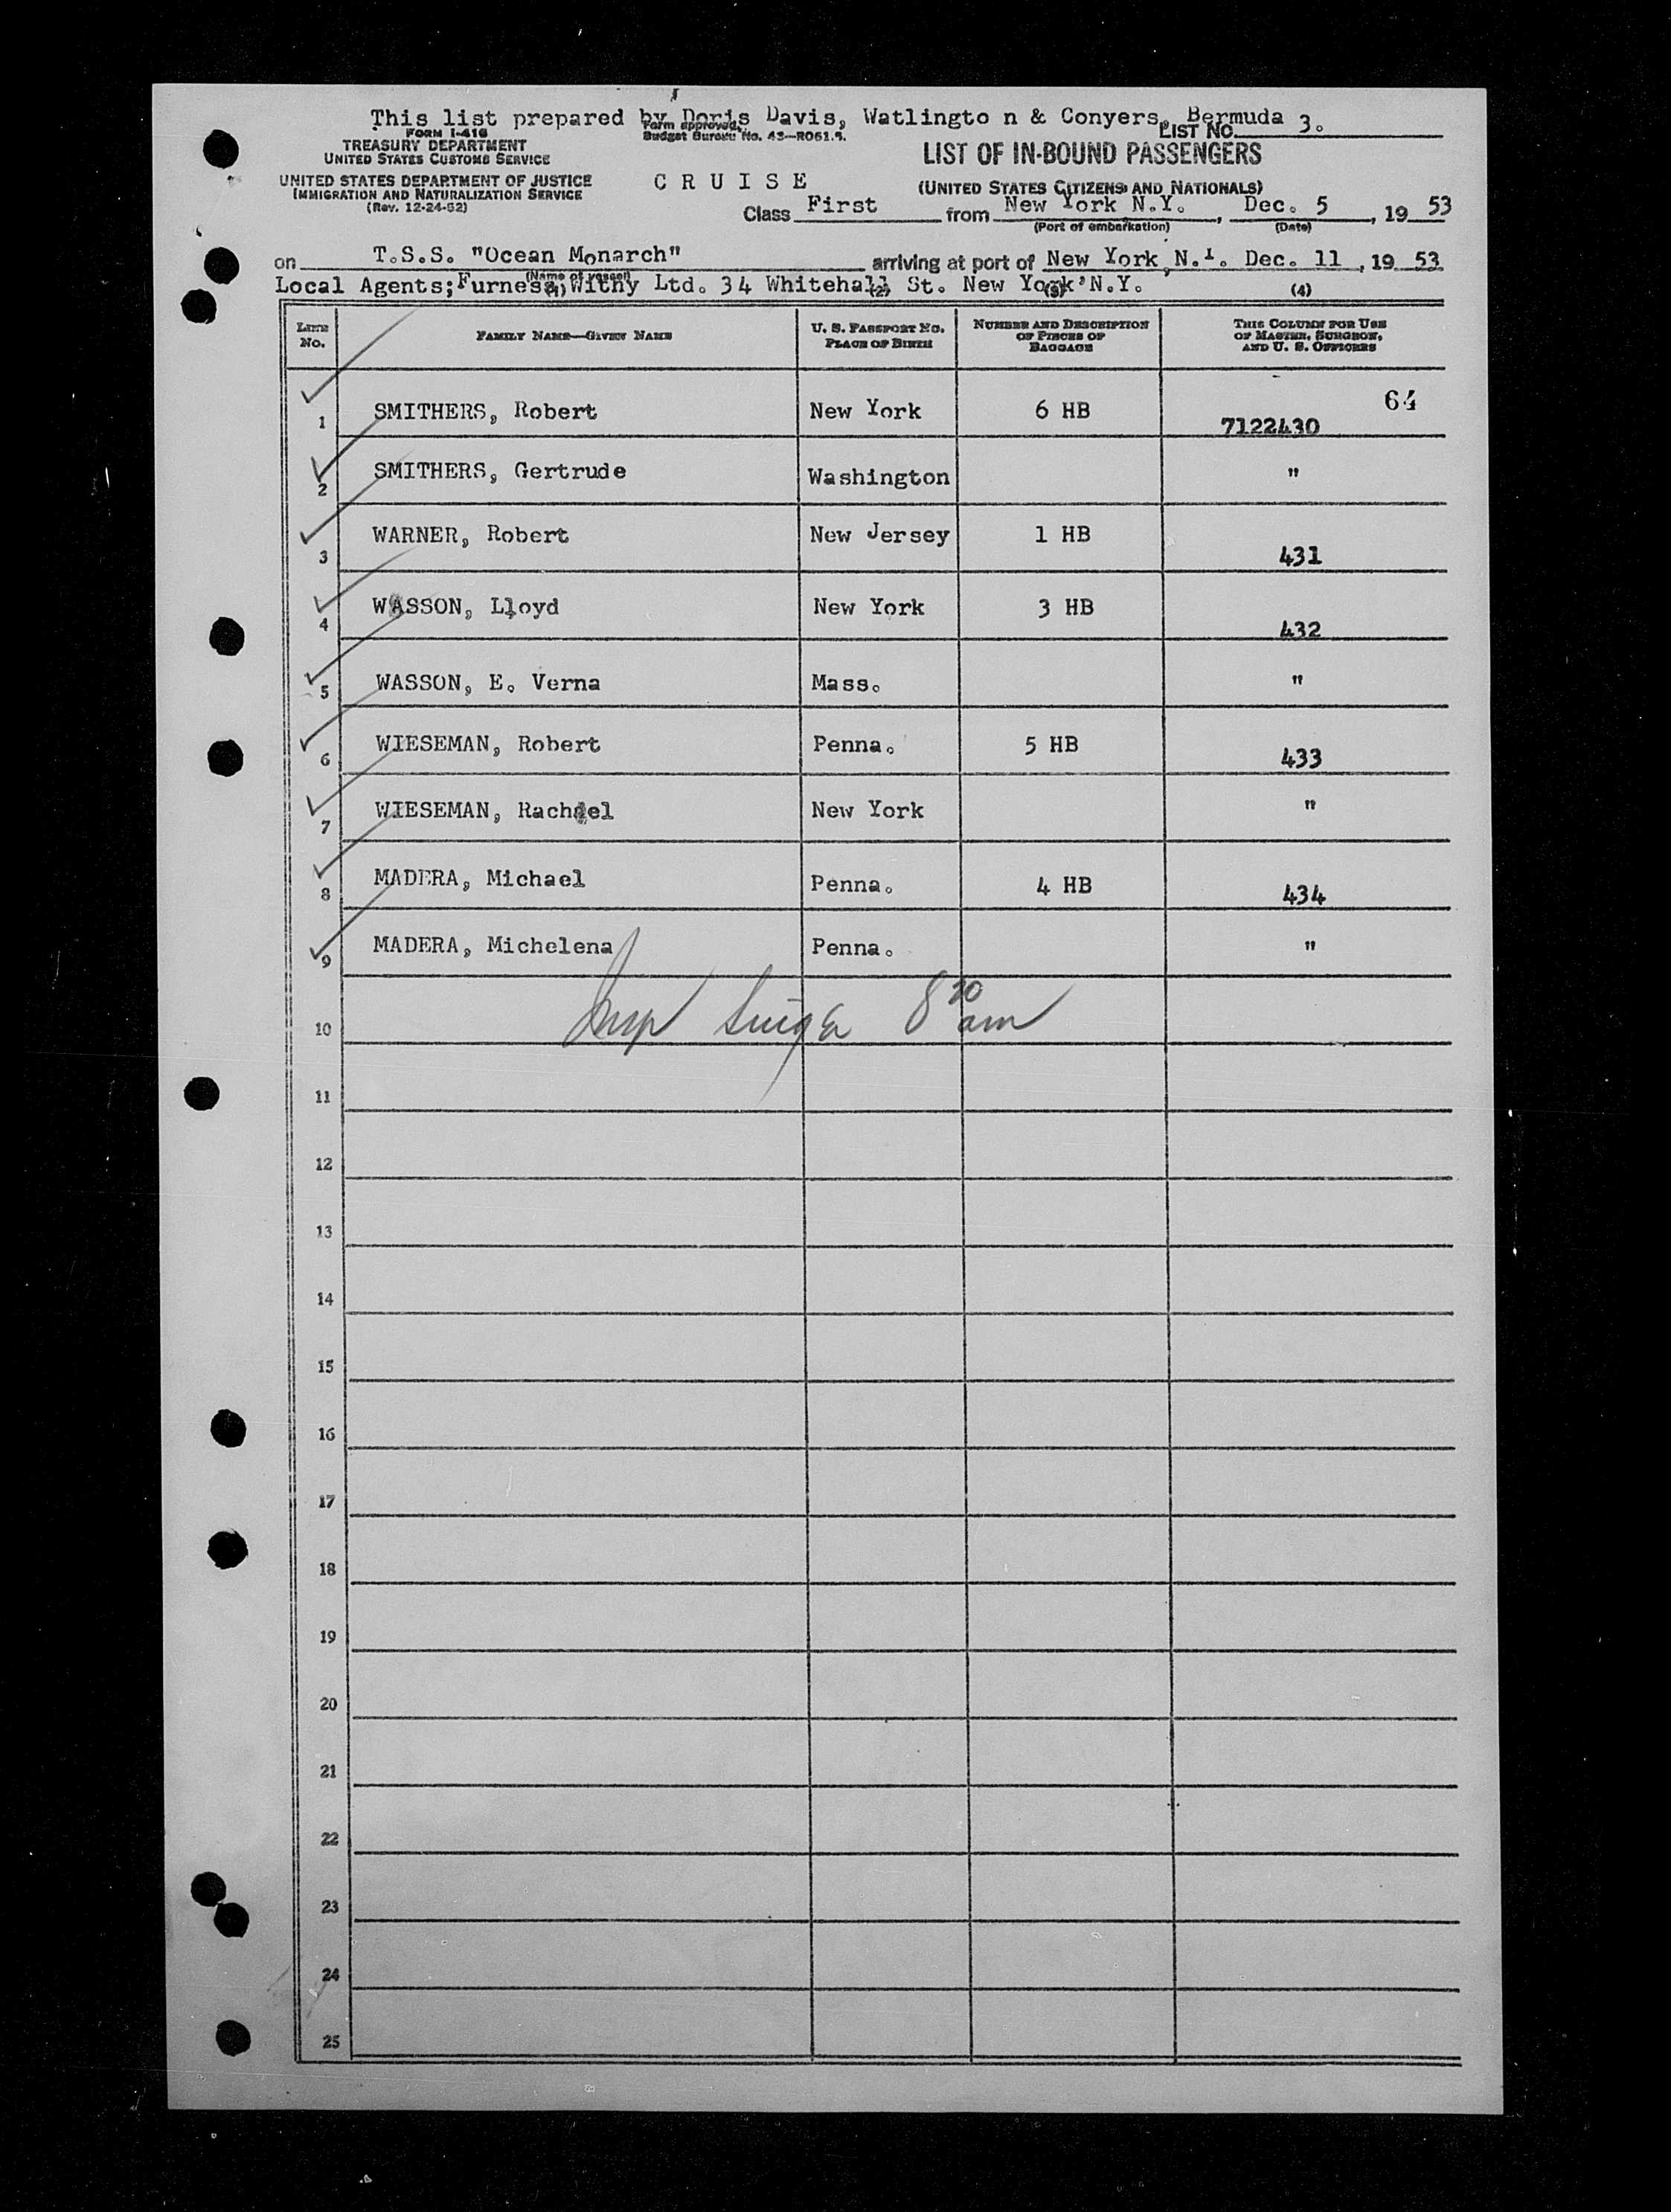 This list prepared by Doris Davis, Watlingto n & Conyers, Bermuda
Form I-416
TREASURY DEPARTMENT
UNITED STATES CUSTOMS SERVICE
UNITED STATES DEPARTMENT OF JUSTICE
IMMIGRATION AND NATURALIZATION SERVICE
(Rev. 12-24-52)
Form approved.
Budget Bureau No. 43—R061.5.
C R U I S E
LIST NO. 3.
LIST OF IN-BOUND PASSENGERS
(UNITED STATES CITIZENS AND NATIONALS)
Class First from New York N.Y., Dec. 5, 19 53
(Port of embarkation) (Date)
on T.S.S. "Ocean Monarch" arriving at port of New York, N.Y. Dec. 11, 19 53
(Name of vessel)
Local Agents; Furness, Withy Ltd. 34 Whitehall St. New York, N.Y.
(1) (2) (3) (4)
LINE NO. FAMILY NAME—GIVEN NAME U. S. PASSPORT NO. PLACE OF BIRTH NUMBER AND DESCRIPTION OF PIECES OF BAGGAGE THIS COLUMN FOR USE OF MASTER, SURGEON, AND U. S. OFFICERS
64
1 SMITHERS, Robert New York 6 HB 7122430
2 SMITHERS, Gertrude Washington "
3 WARNER, Robert New Jersey 1 HB 431
4 WASSON, Lloyd New York 3 HB 432
5 WASSON, E. Verna Mass. "
6 WIESEMAN, Robert Penna. 5 HB 433
7 WIESEMAN, Rachel New York "
8 MADERA, Michael Penna. 4 HB 434
9 MADERA, Michelena Penna. "
10 Insp 8 30 am
11
12
13
14
15
16
17
18
19
20
21
22
23
24
25